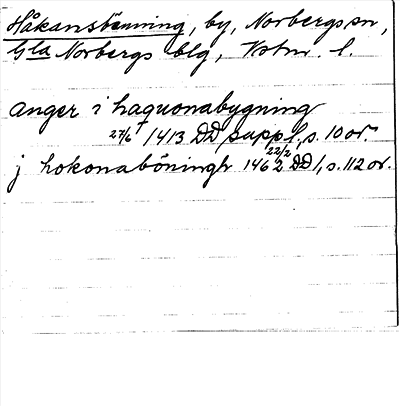 Håkansbenning, by, Norbergs sn,
Gla Norbergs blg, Vstm. l.
anger i haquonabygning
27/6 † 1413 DD suppl., s. 10 or.
j hokonaböningh 1462 22/2 DD 1, s. 112 or.